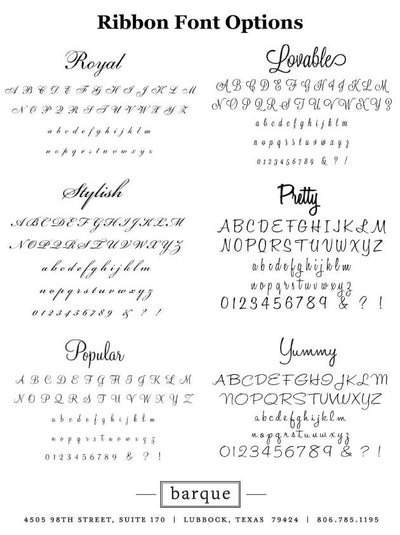 Ribbon Font Options
Royal
A B C D E F G H I J K L M
N O P Q R S T U V W X Y Z
a b c d e f g h i j k l m
n o p q r s t u v w x y z
Lovable
A B C D E F G H I J K L M
N O P Q R S T U V W X Y Z
a b c d e f g h i j k l m
n o p q r s t u v w x y z
0 1 2 3 4 5 6 7 8 9 & ? !
Stylish
A B C D E F G H I J K L M
N O P Q R S T U V W X Y Z
a b c d e f g h i j k l m
n o p q r s t u v w x y z
0 1 2 3 4 5 6 7 8 9 & ? !
Pretty
A B C D E F G H I J K L M
N O P Q R S T U V W X Y Z
a b c d e f g h i j k l m
n o p q r s t u v w x y z
0 1 2 3 4 5 6 7 8 9 & ? !
Popular
A B C D E F G H I J K L M
N O P Q R S T U V W X Y Z
a b c d e f g h i j k l m
n o p q r s t u v w x y z
0 1 2 3 4 5 6 7 8 9 & ? !
Yummy
A B C D E F G H I J K L M
N O P Q R S T U V W X Y Z
a b c d e f g h i j k l m
n o p q r s t u v w x y z
0 1 2 3 4 5 6 7 8 9 & ? !
barque
4505 98TH STREET, SUITE 170 | LUBBOCK, TEXAS 79424 | 806.785.1195